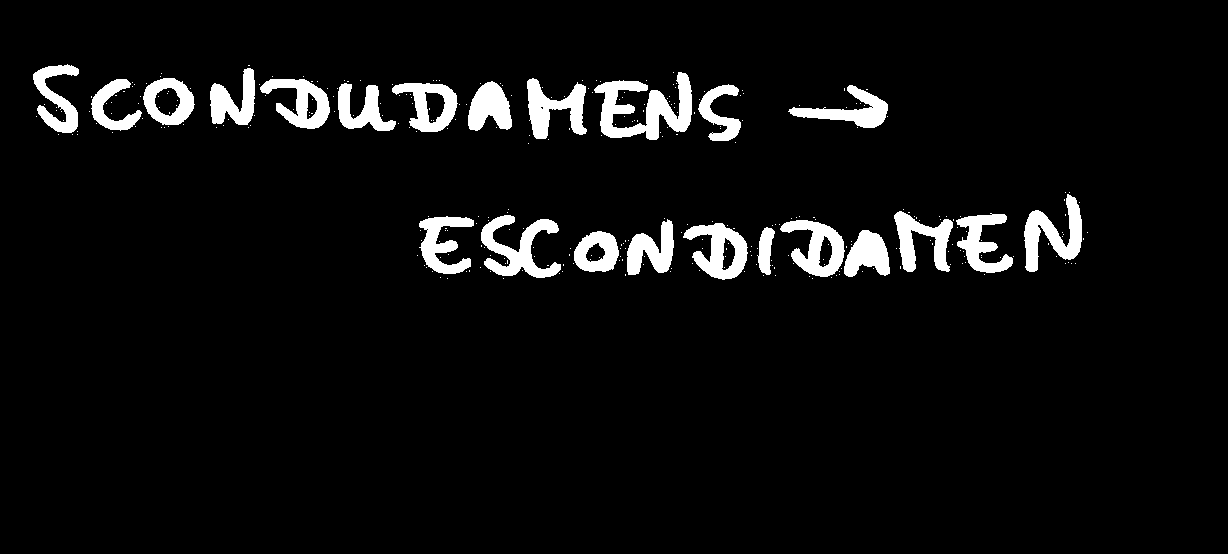 SCONDUDAMENS →
ESCONDIDAMEN